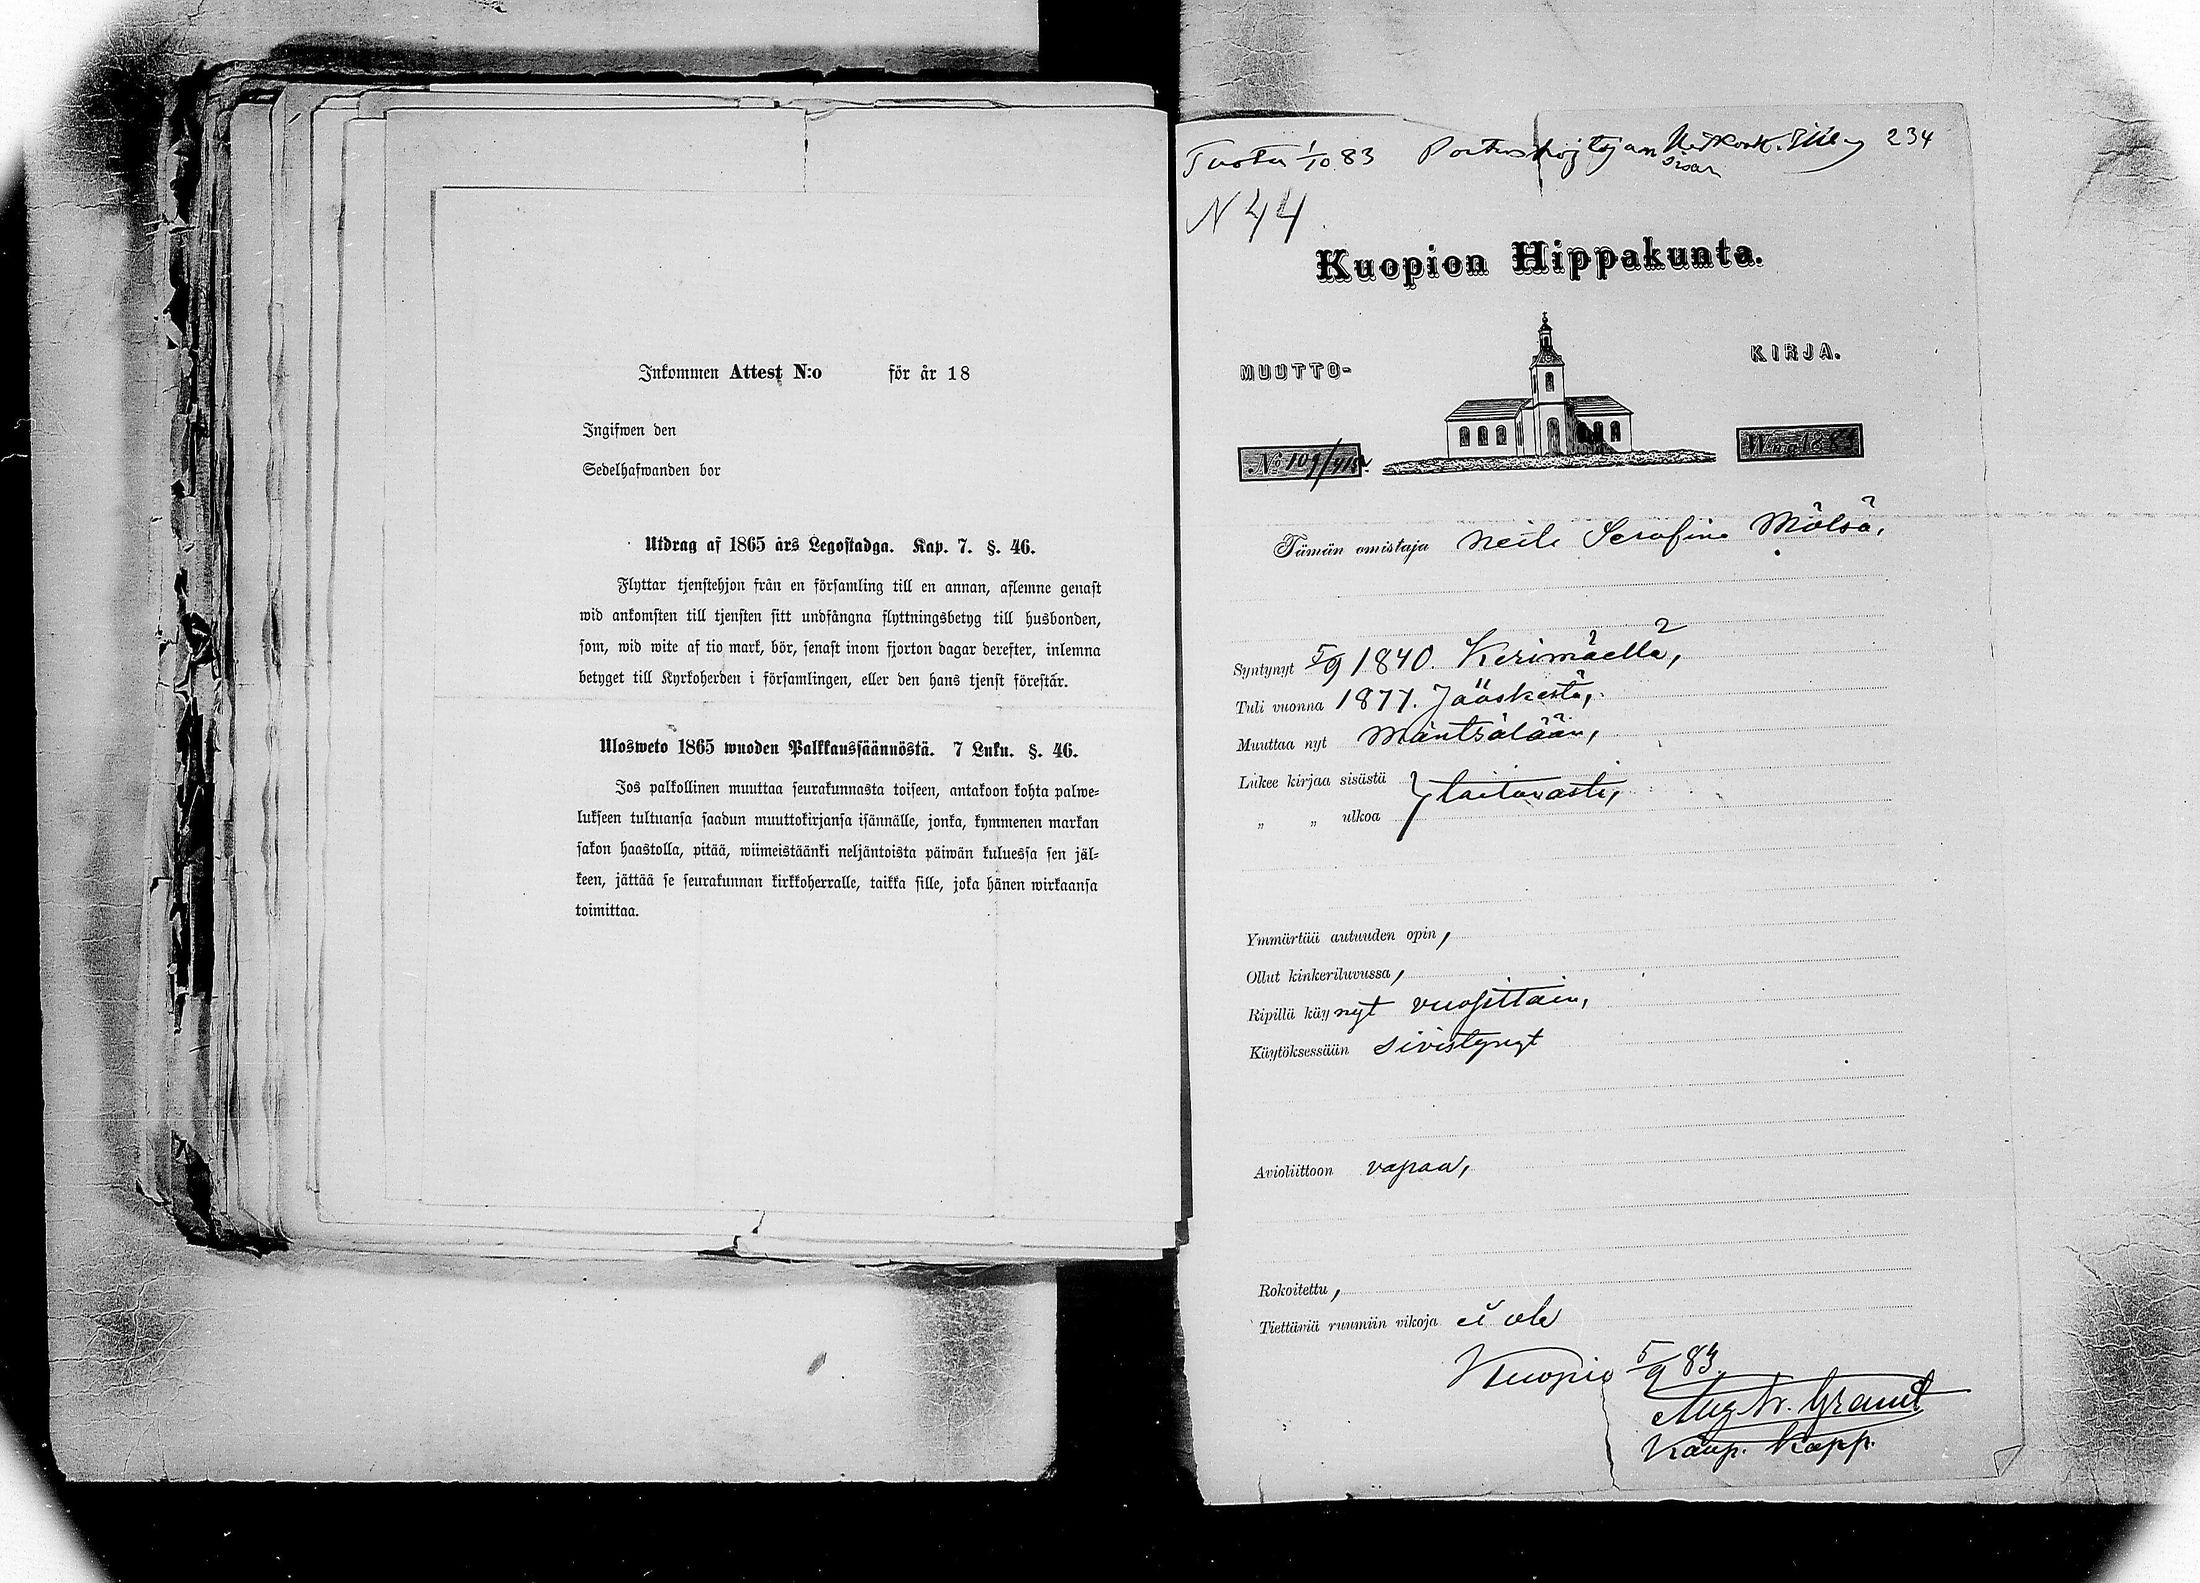 Inkommen Attest N:o för år 18
Ingifwen den
Sedelhafwanden bor
Utdrag af 1865 års Legostadga. Kap. 7. §. 46.
Flyttar tjenstehjon från en församling till en annan, aflemne genast
wid ankomsten till tjensten sitt undfångna flyttningsbetyg till husbonden,
som, wid wite af tio mark, bör, senast inom fjorton dagar derefter, inlemna
betyget till Kyrkoherden i församlingen, eller den hans tjenst förestår.
Ulosweto 1865 wuoden Palkkaussäännöstä. 7 Luku. §. 46.
Jos palkollinen muuttaa seurakunnasta toiseen, antakoon kohta palwe=
lukseen tultuansa saadun muuttokirjansa isännälle, jonka, kymmenen markan
sakon haastolla, pitää, wiimeistäänki neljäntoista päiwän kuluessa sen jäl=
keen, jättää se seurakunnan kirkkoherralle, taikka sille, joka hänen wirkaansa
toimittaa.
Tuotu 1/10 83 234
N 44
Kuopion Hippakunta.
MUUTTO- KIRJA.
No 109
Tämän omistaja Neiti Serafina Mölsä,
Syntynyt 5/9 1840. Kerimäellä,
Tuli vuonna 1877. Jääskestä,
Muuttaa nyt Mäntsälään,
Lukee kirjaa sisästä } taitavasti,
„ „ ulkoa
Ymmärtää autuuden opin,
Ollut kinkeriluvussa,
Ripillä käynyt vuosittain,
Käytöksessään sivistynyt
Avioliittoon vapaa,
Rokoitettu,
Tiettäviä ruumiin vikoja ei ole
Kuopio 5/9 83
Aug. Fr. Granit
Kaup. Kapp.